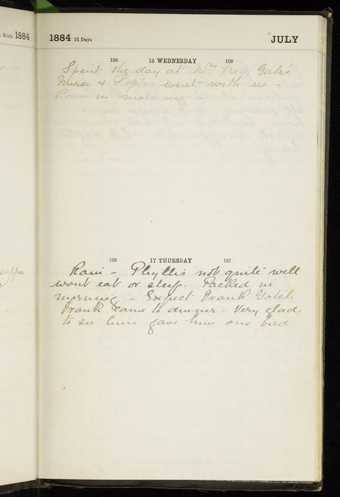 1884
1884 31 Days JULY
198 16 WEDNESDAY 168
Spent the day at Mrs
went with us -
Rain in morning -
199 17 THURSDAY 167
Rain - Phyllis not quite well
wont eat or sleep. Packed in
morning - Expect Frank
Frank came to dinner - Very glad
to see him gave him our bed